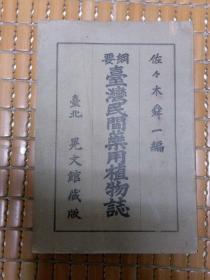 佐々木舜一編
綱要臺灣民間藥用植物誌
臺北 晃文館藏版